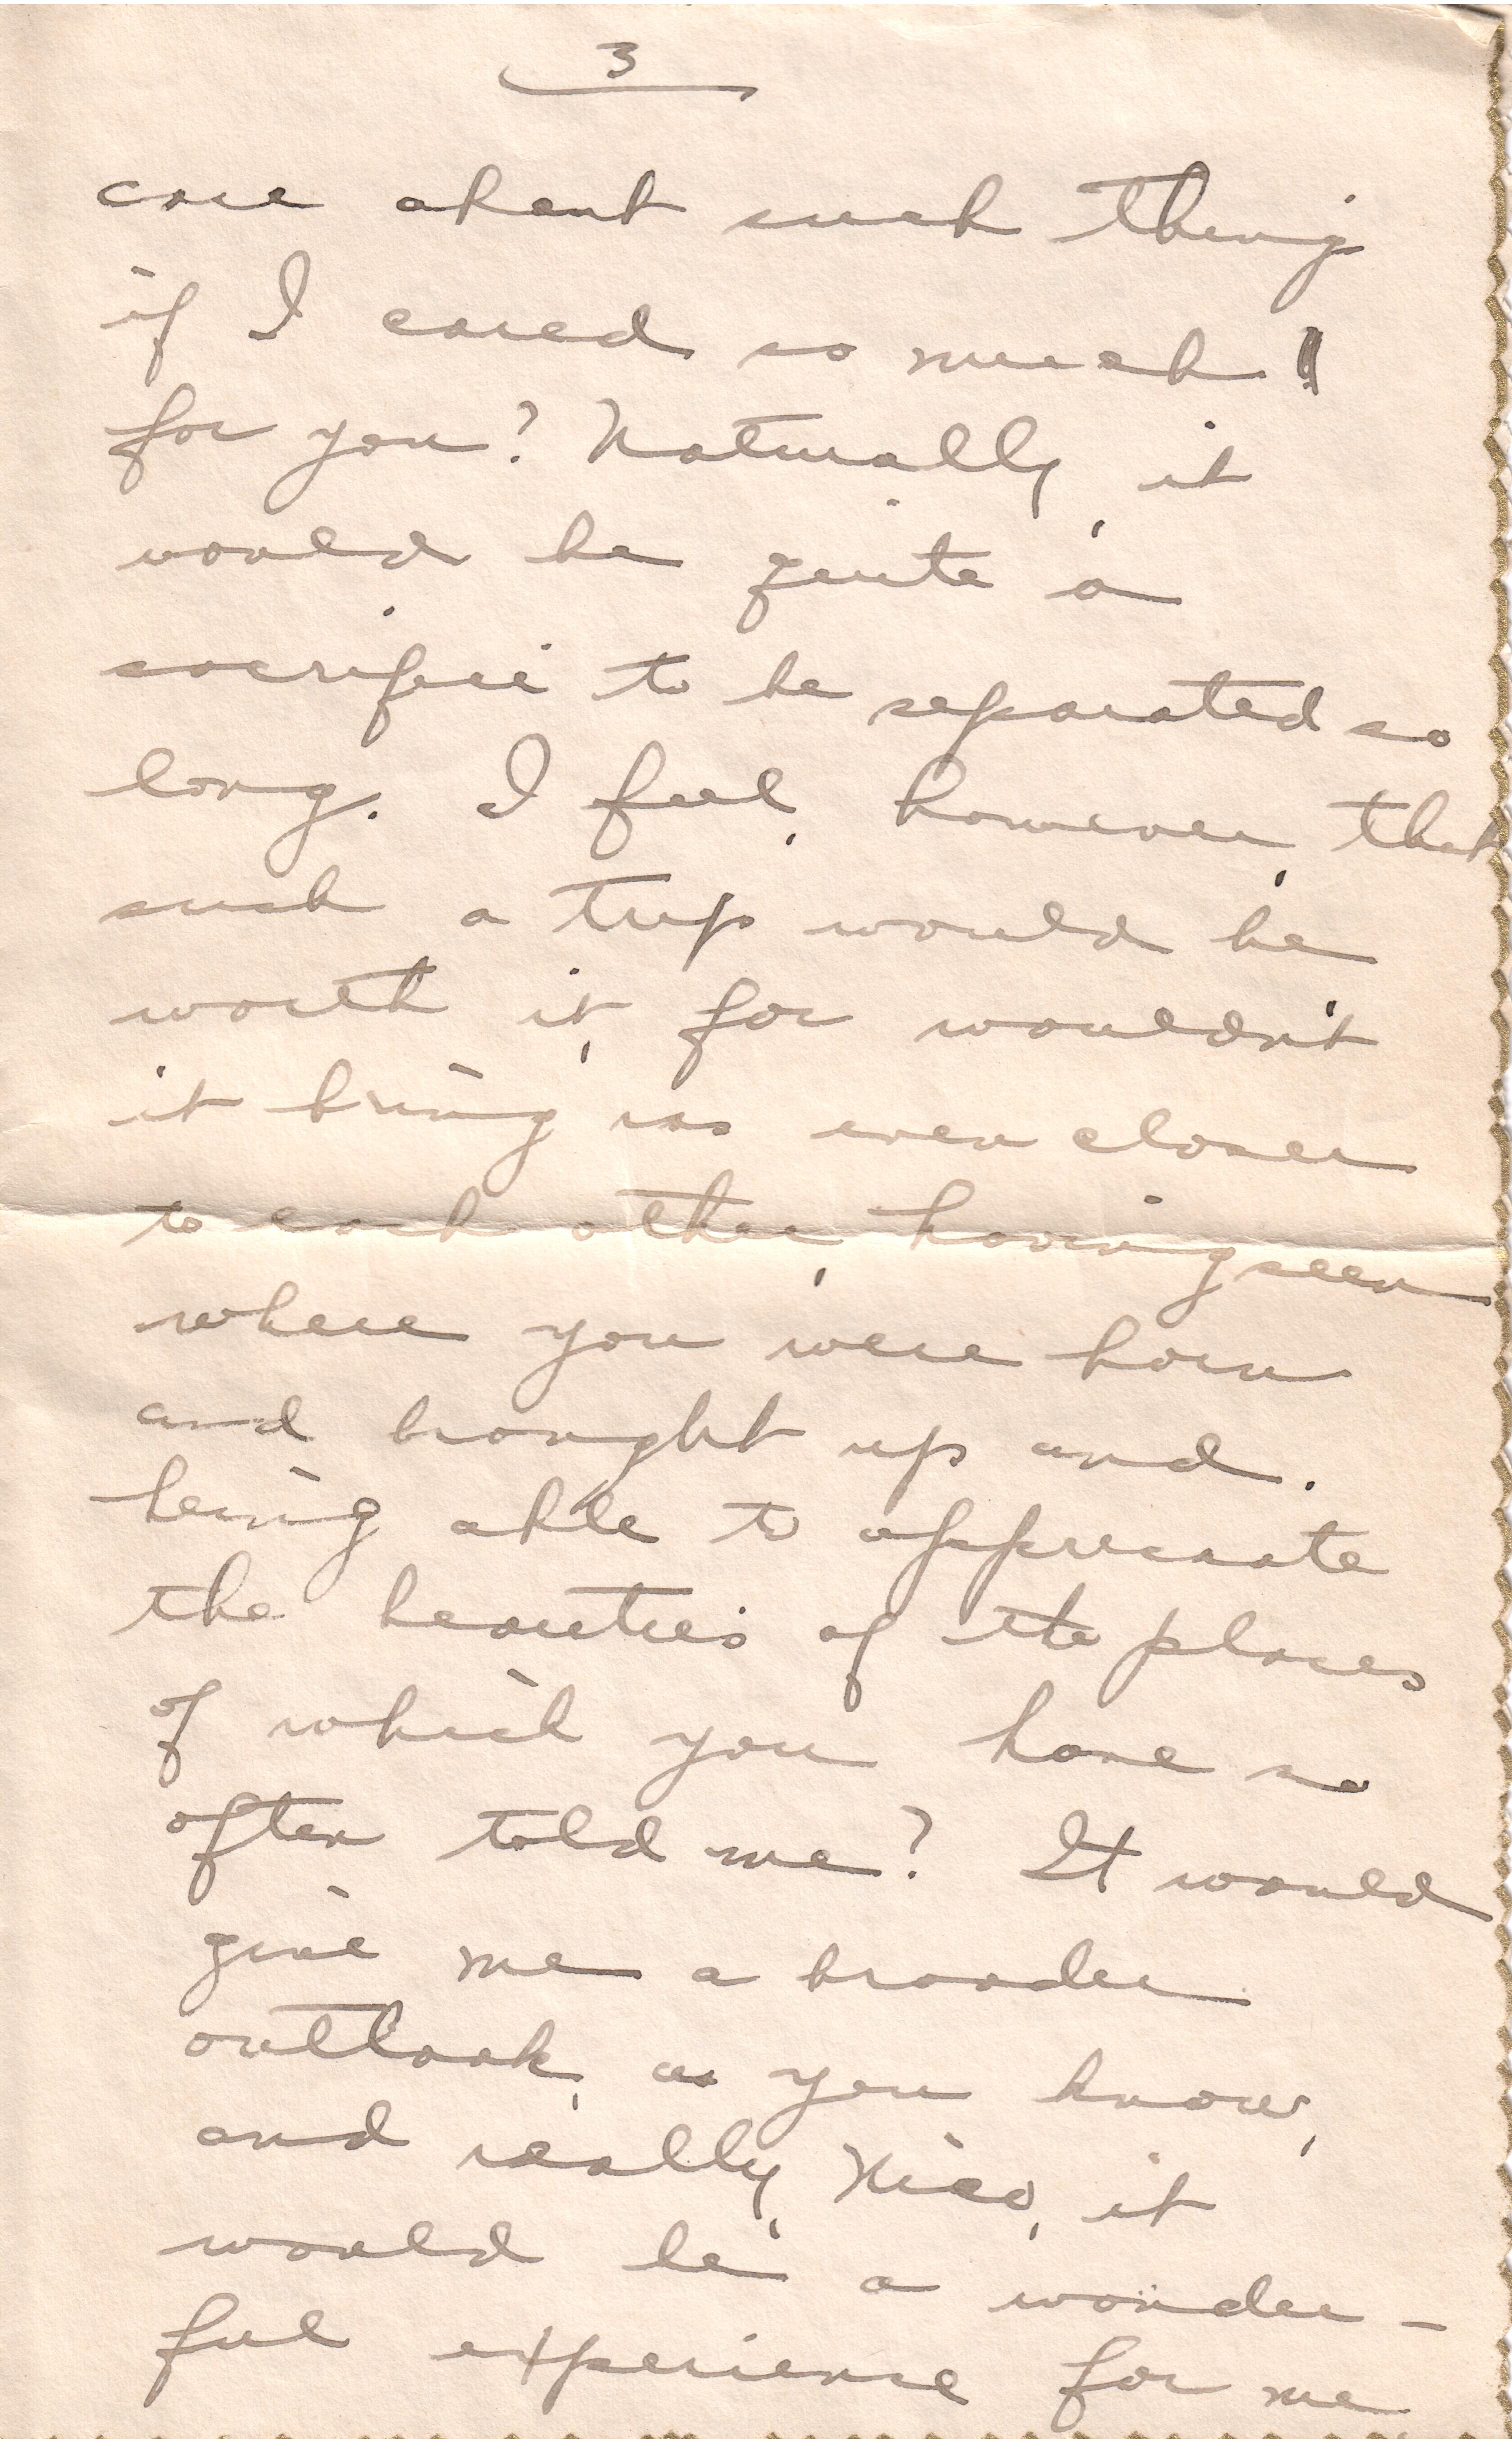 3
care about such thing
if I cared so much
for you? Naturally, it
would be quite a
sacrifice to be separated so
long. I feel, however, that
such a trip would be
worth it, for wouldn't
it bring us even closer
to each other, having seen
where you were born
and brought up and
being able to appreciate
the beauties of the places
of which you have so
often told me? It would
give me a broader
outlook, as you know,
and really, Nico, it
would be a wonder-
ful experience for me